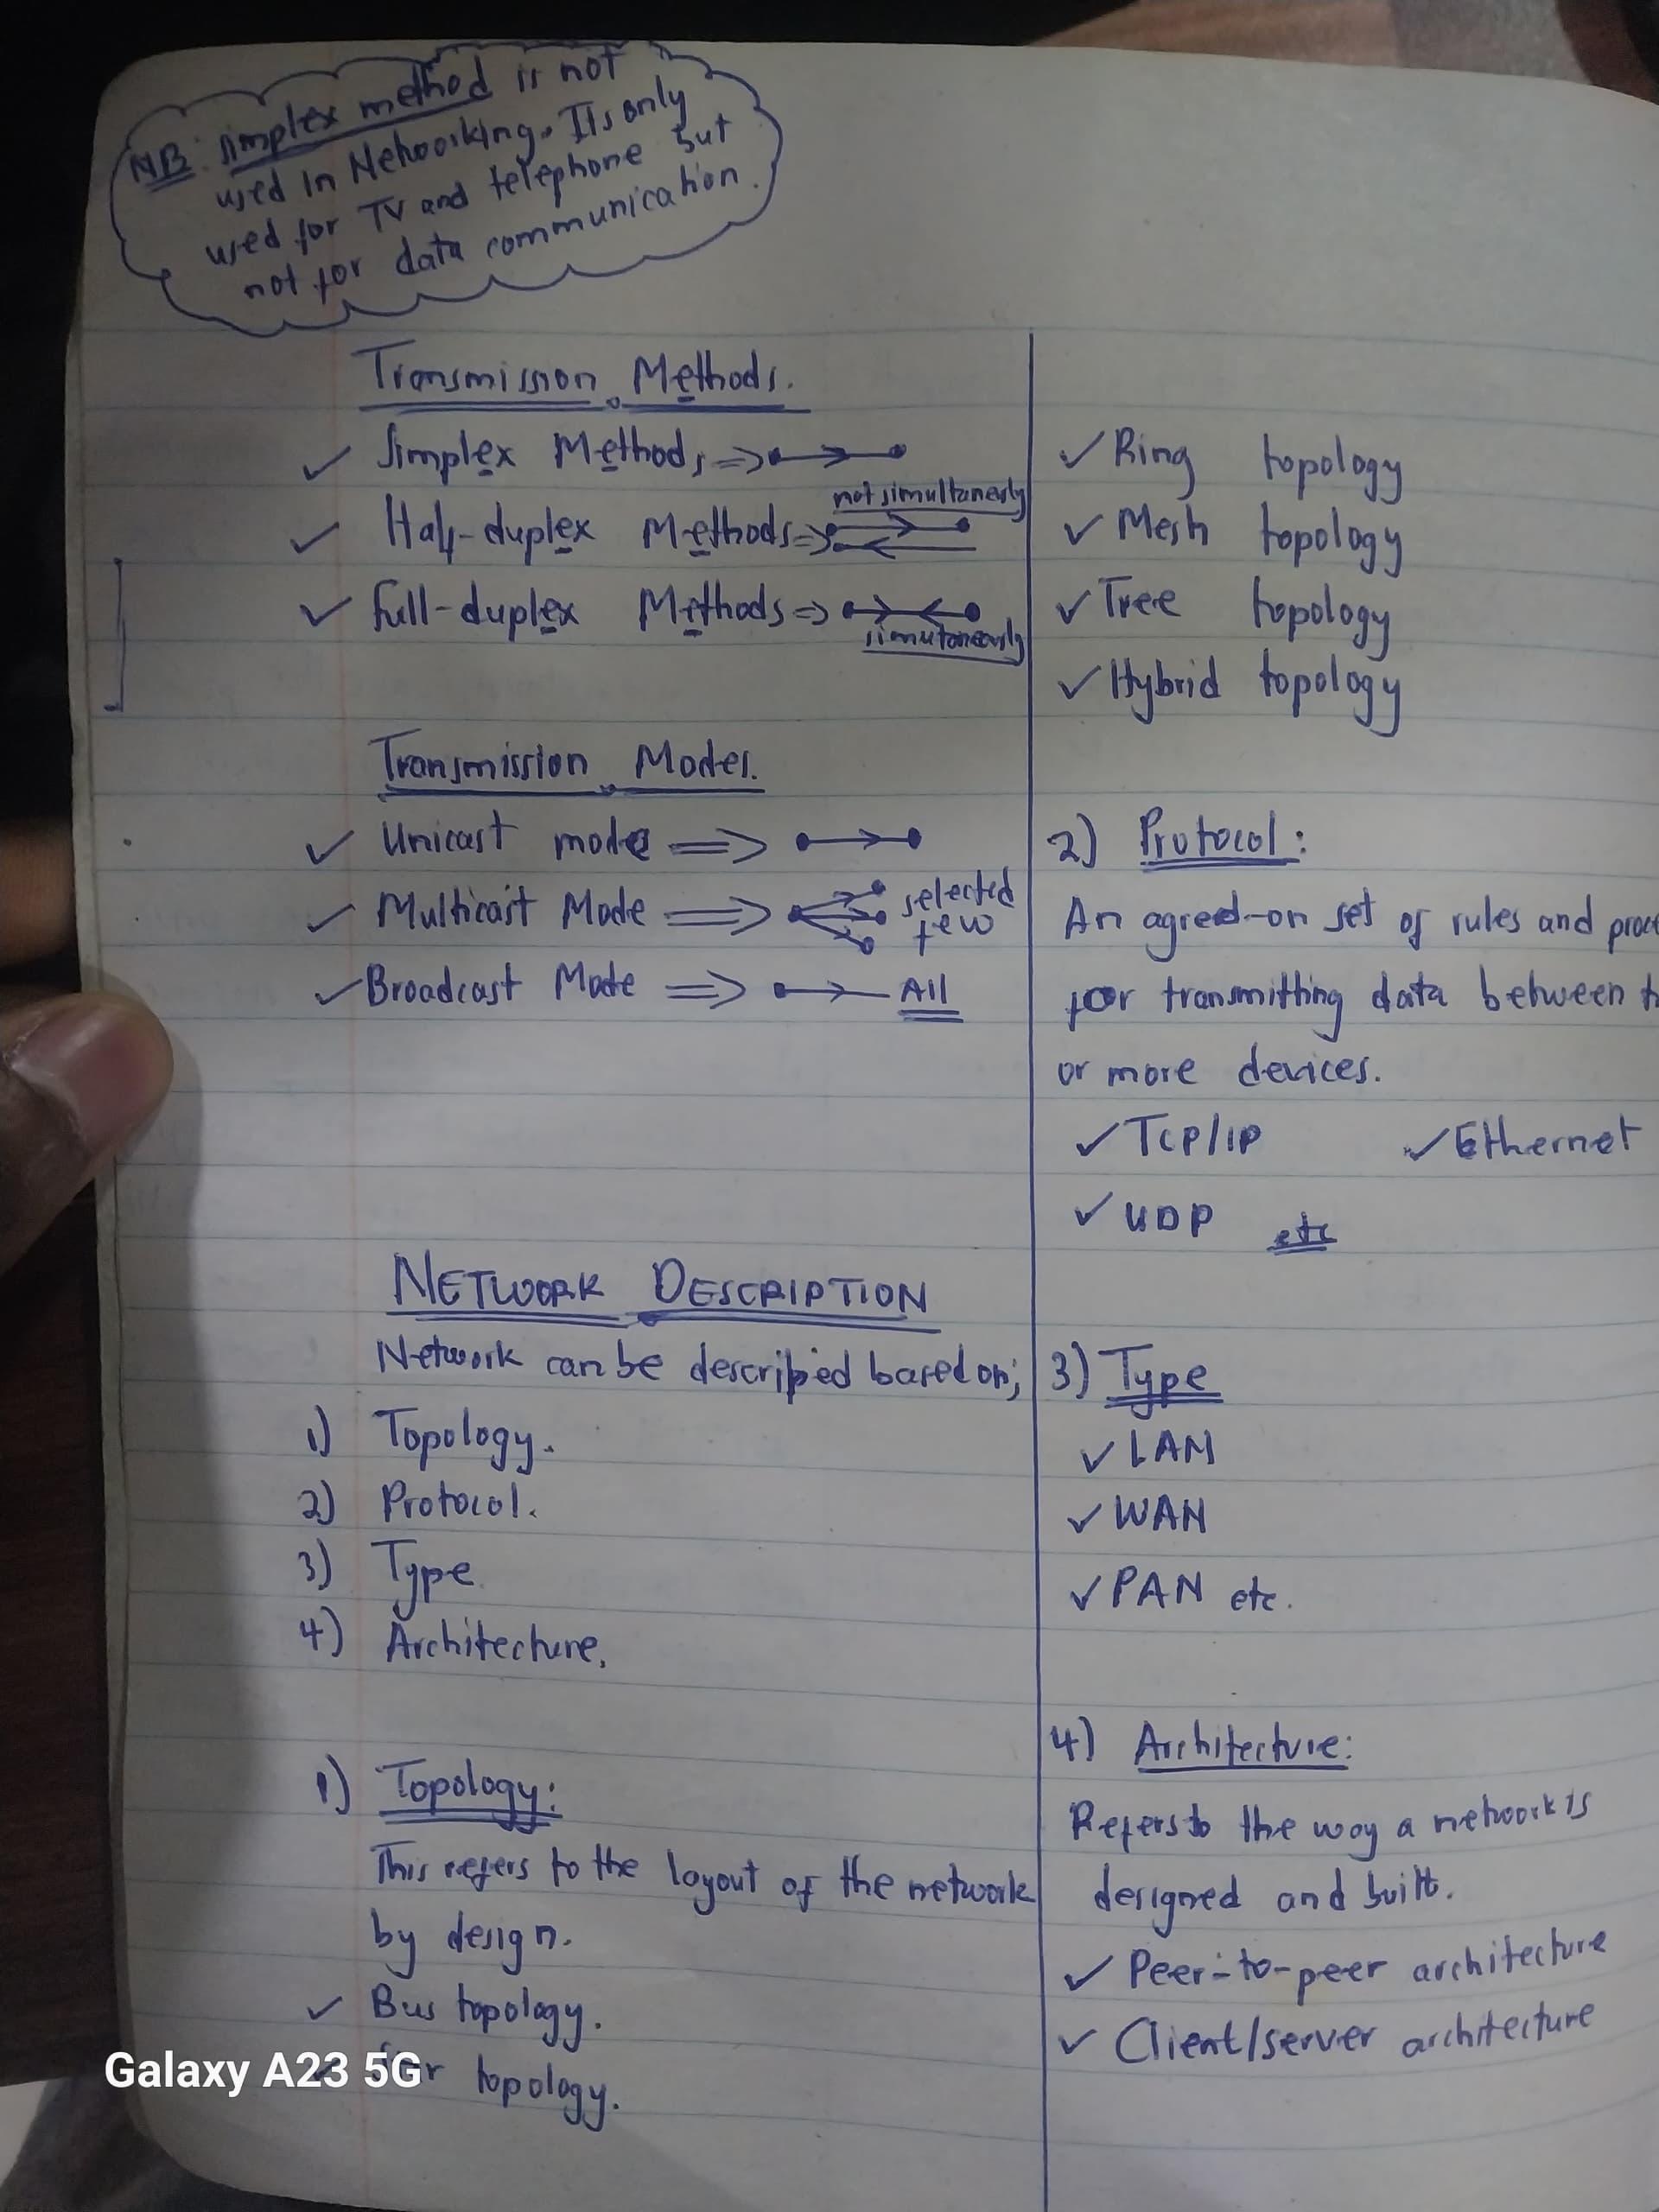 NB: simplex method is not
used in Networking. Its only
used for TV and telephone but
not for data communication.
Transmission Methods.
✓ Simplex Methods =>
✓ Half-duplex Methods => not simultaneously
✓ full-duplex Methods =>
simutaneously
Transmission Modes.
✓ Unicast mode =>
✓ Multicast Mode => selected
few
✓ Broadcast Mode => All
NETWORK DESCRIPTION
Network can be described based on;
1) Topology.
2) Protocol.
3) Type
4) Architecture.
1) Topology:
This refers to the layout of the network
by design.
✓ Bus topology.
topology.
✓ Ring topology
✓ Mesh topology
✓ Tree topology
✓ Hybrid topology
2) Protocol:
An agreed-on set of rules and
for transmitting data between
or more devices.
✓ TCP/IP ✓ Ethernet
✓ UDP etc
3) Type
✓ LAN
✓ WAN
✓ PAN etc.
4) Architecture:
Refers to the way a network is
designed and built.
✓ Peer-to-peer architecture
✓ Client/server architecture
Galaxy A23 5G